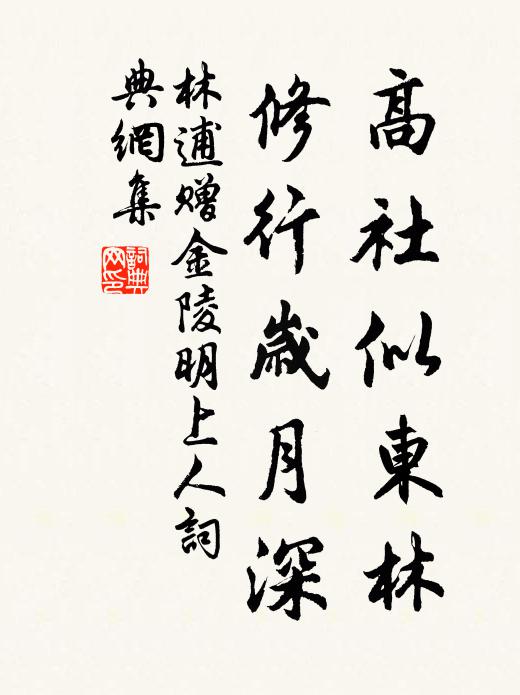 高社似東林
修行歲月深
林逋贈金陵明上人詞
典網集
詞典網印